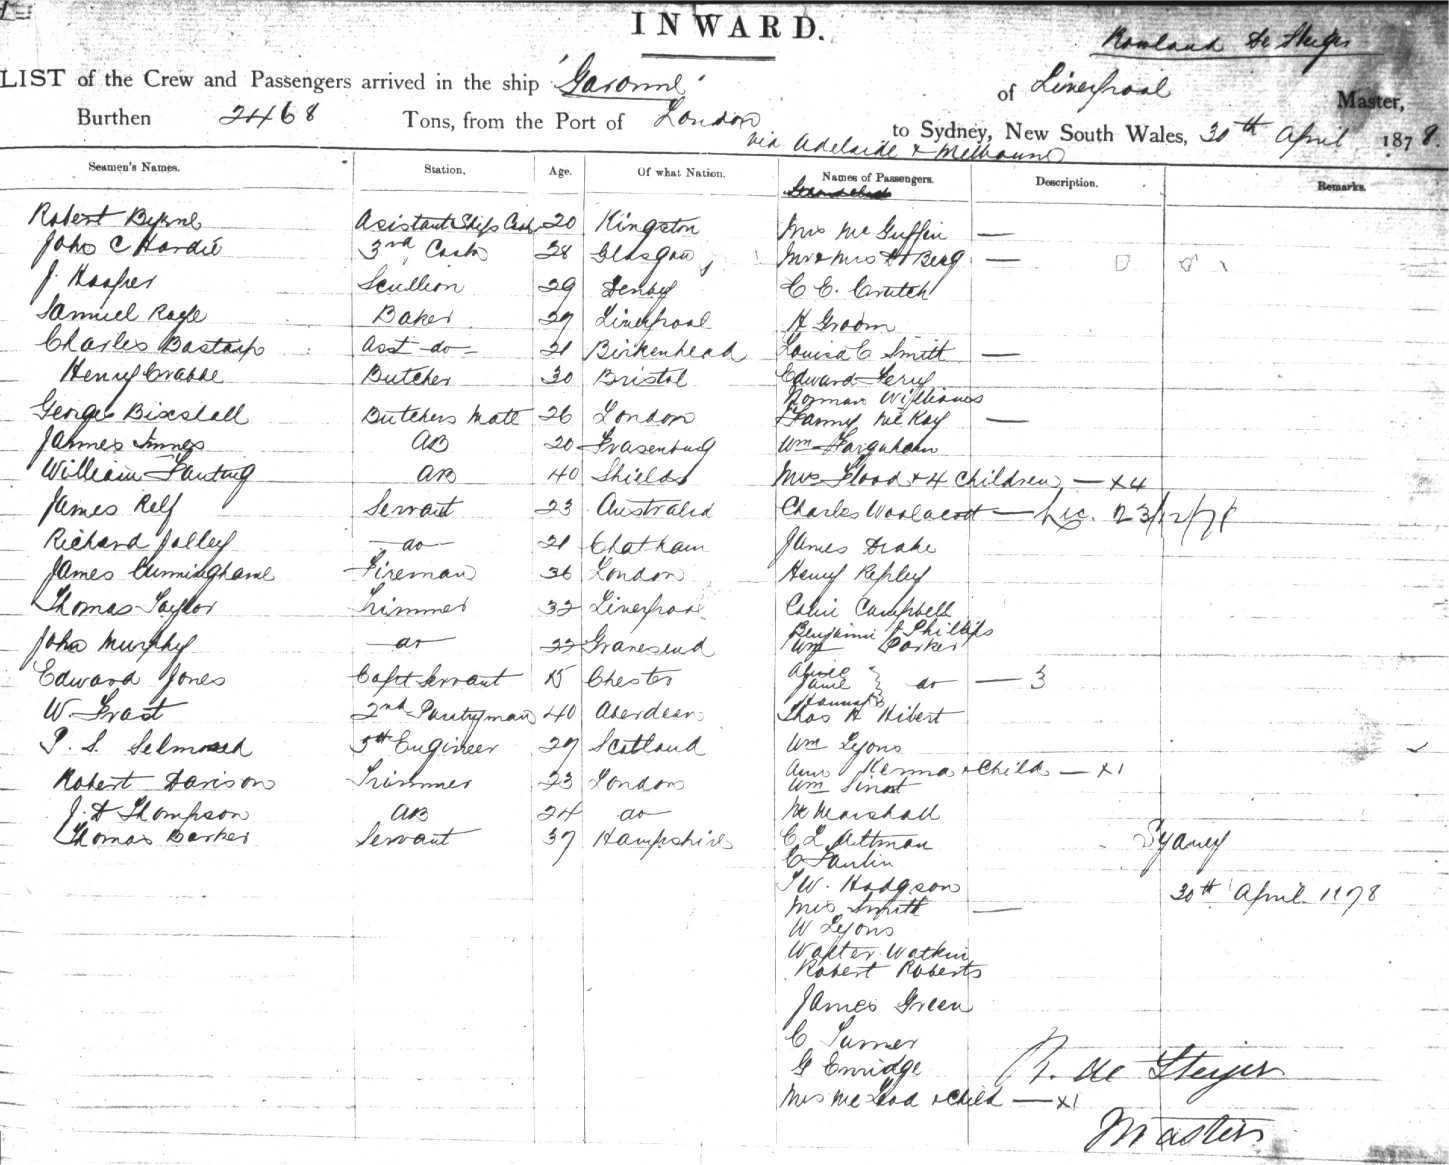 INWARD.
Rowland De Steiger
LIST of the Crew and Passengers arrived in the ship 'Garonne' of Liverpool Master,
Burthen 2468 Tons, from the Port of London to Sydney, New South Wales, 30th April 1878.
via Adelaide & Melbourne
Seamen's Names. Station. Age. Of what Nation. Names of Passengers. Description. Remarks.
Robert Byrne Asistant Ships Cook 20 Kingston Mrs Mc Guffin —
John C Hardie 3rd Cook 28 Glasgow Mr & Mrs Berg —
J. Hooper Scullion 29 Denby C C. Crutch
Samuel Rogle Baker 27 Liverpool H Groom
Charles Bastarp Asst do 21 Birkenhead Louisa C Smith —
Henry Crabbe Butcher 30 Bristol Edward
Norman Williams
George Bixshall Butchers Mate 26 London Fanny McKay —
James Innes AB 20 Wm Farquharn
William AB 40 Shields Mrs Flood & 4 Children — x4
James Relf Servant 23 Australia Charles Woolacott — Lic. 23/12/78
Richard Jolley do 21 Chatham James Drake
James Cunninghame Fireman 36 London Henry Repley
Thomas Taylor Trimmer 32 Liverpool Colin Campbell
Benjamin J Phillips
John Murphy do 22 Gravesend Wm Parker
Edward Jones Capt Servant 15 Chester Alice Jane do — 3
Hannah
W. Frost 2nd Pantryman 40 Aberdeen Thos H Hibert
P. S. 5th Engineer 27 Scotland Wm Lyons
Ann Kenna & Child — x1
Robert Davison Trimmer 23 London Wm
J. D Thompson AB 24 do Mc Marshall
Thomas Barker Servant 37 Hampshire C L Pittman Sydney
C
T W. Hodgson 30th April 1878
Mrs Smith —
W Lyons
Walter Watkin
Robert Roberts
James Green
C Turner
G Emridge R. de Steiger
Mrs McLeod & Child — x1
Master